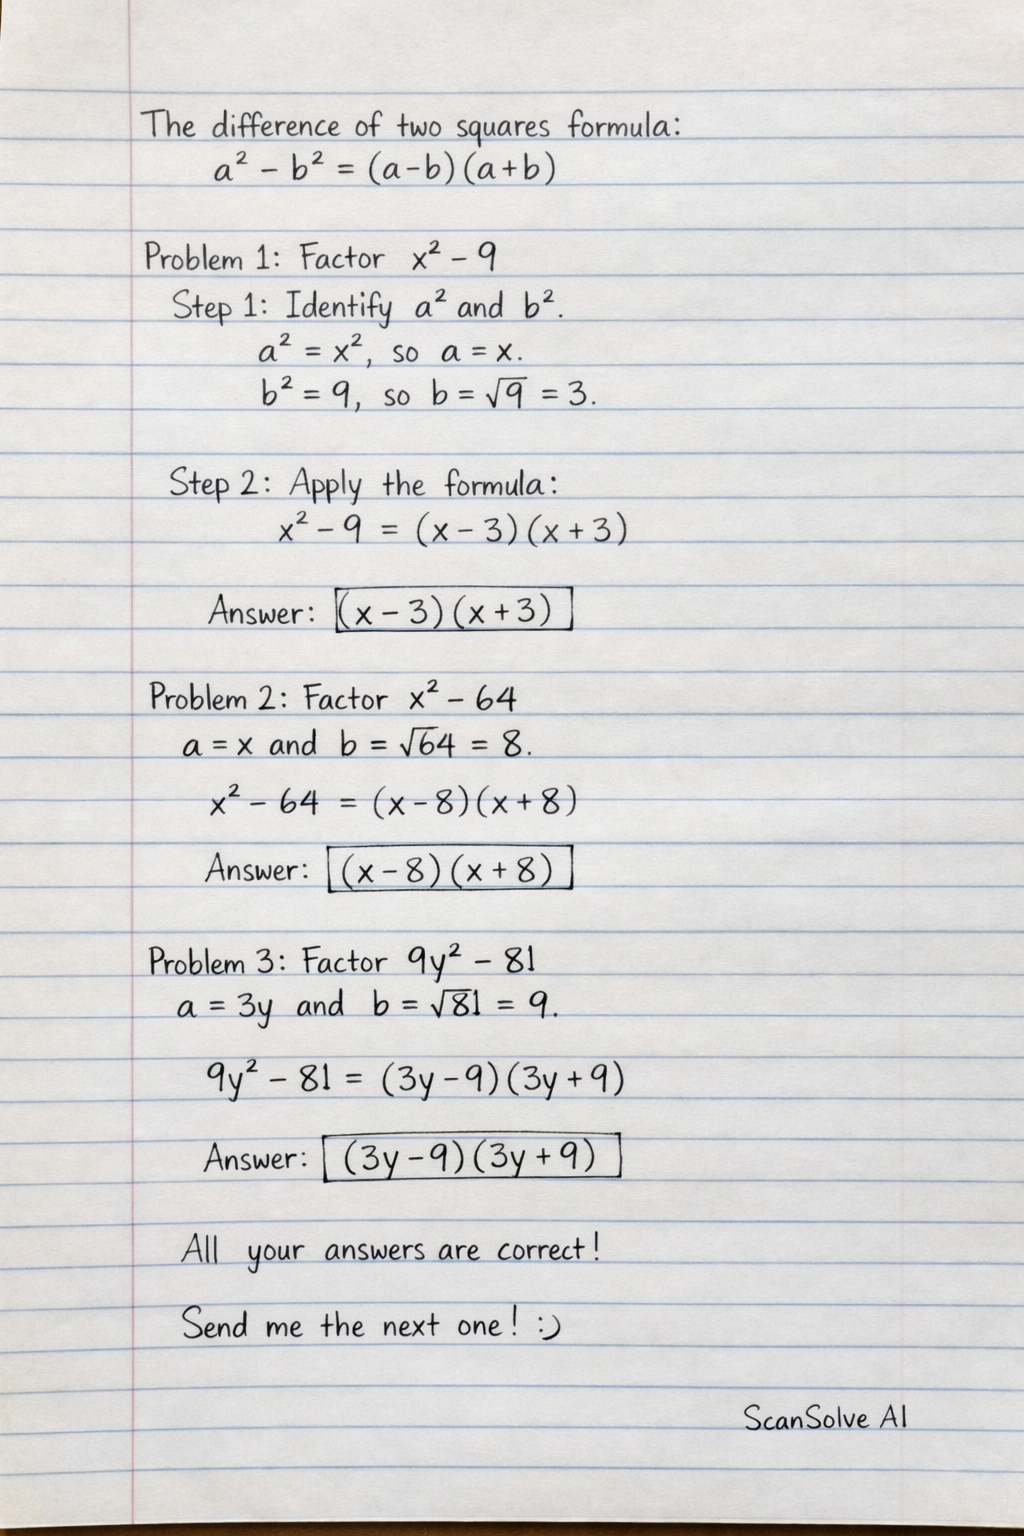 The difference of two squares formula:
a² - b² = (a-b)(a+b)
Problem 1: Factor x² - 9
Step 1: Identify a² and b².
a² = x², so a = x.
b² = 9, so b = √9 = 3.
Step 2: Apply the formula:
x² - 9 = (x - 3)(x + 3)
Answer: (x - 3)(x + 3)
Problem 2: Factor x² - 64
a = x and b = √64 = 8.
x² - 64 = (x - 8)(x + 8)
Answer: (x - 8)(x + 8)
Problem 3: Factor 9y² - 81
a = 3y and b = √81 = 9.
9y² - 81 = (3y - 9)(3y + 9)
Answer: (3y - 9)(3y + 9)
All your answers are correct!
Send me the next one! :)
ScanSolve AI